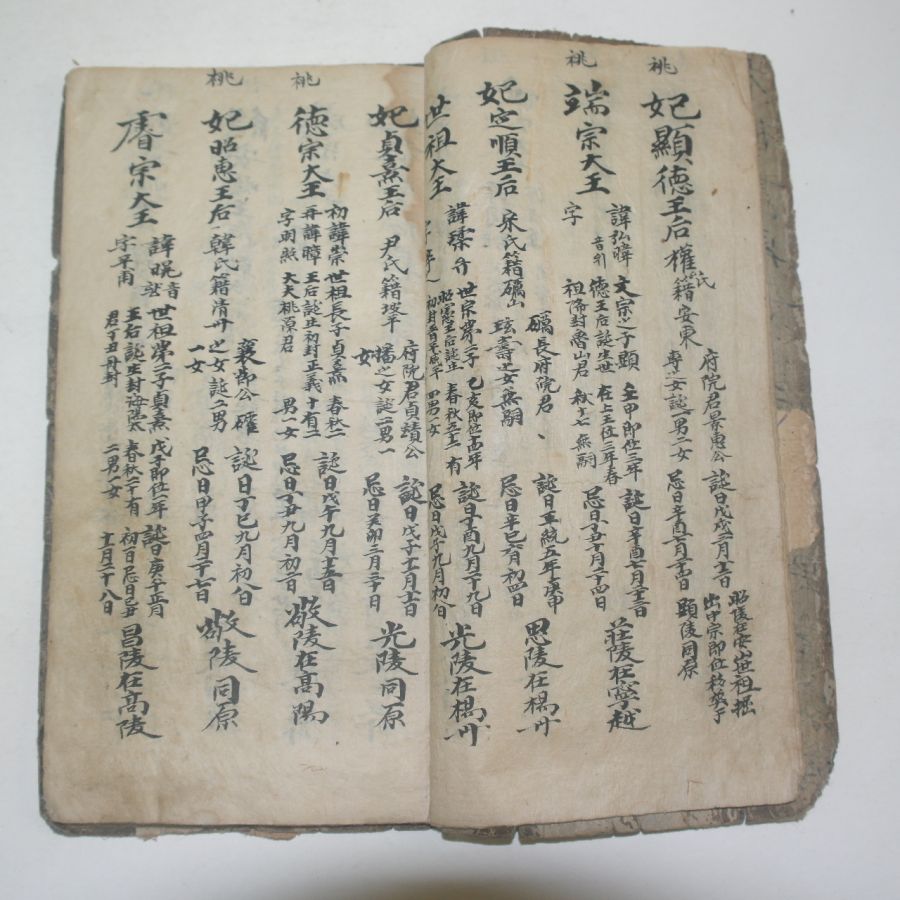 祧
妃顯德王后權氏籍安東
府院君景惠公
專之女誕一男二女
誕日戊戌三月十二日
忌日辛酉七月二十四日
顯陵同原
祧
端宗大王
諱弘暐
音引
字
文宗之子顯
德王后誕生世
祖降封魯山君
壬申即位三年
在上王位三年春
秋十七無嗣
誕日辛酉七月二十三日
忌日丁丑十月二十四日
莊陵在寧越
妃定順王后
宋氏籍礪山
礪良府院君
玹壽之女無嗣
誕日正統五年庚申
忌日辛巳六月初四日
思陵在楊州
世祖大王
諱瑈
世宗第二子
昭憲王后誕生
乙亥即位十四年
春秋五十二有
四男一女
誕日丁酉九月二十九日
忌日戊子九月初八日
光陵在楊州
妃貞熹王后
尹氏籍坡平
府院君貞靖公
璠之女誕二男一
女
誕日戊子十一月十二日
忌日癸卯三月三十日
光陵同原
祧
德宗大王
初諱崇
再諱暲
字明照
世祖長子貞熹
王后誕生初封正義
大夫桃源君
春秋二
十有二
男一女
誕日戊午九月十五日
忌日丁丑九月初二日
敬陵在高陽
祧
妃昭惠王后
韓氏籍清州
襄節公確
之女誕二男
一女
誕日丁巳九月初八日
忌日甲子四月二十七日
敬陵同原
睿宗大王
諱晄音
字平甫
世祖第二子貞熹
王后誕生封海陽大
君丁丑冊封
戊子即位一年
春秋二十有
二男一女
誕日庚午正月
初一日忌日己丑
十一月二十八日
昌陵在高陵